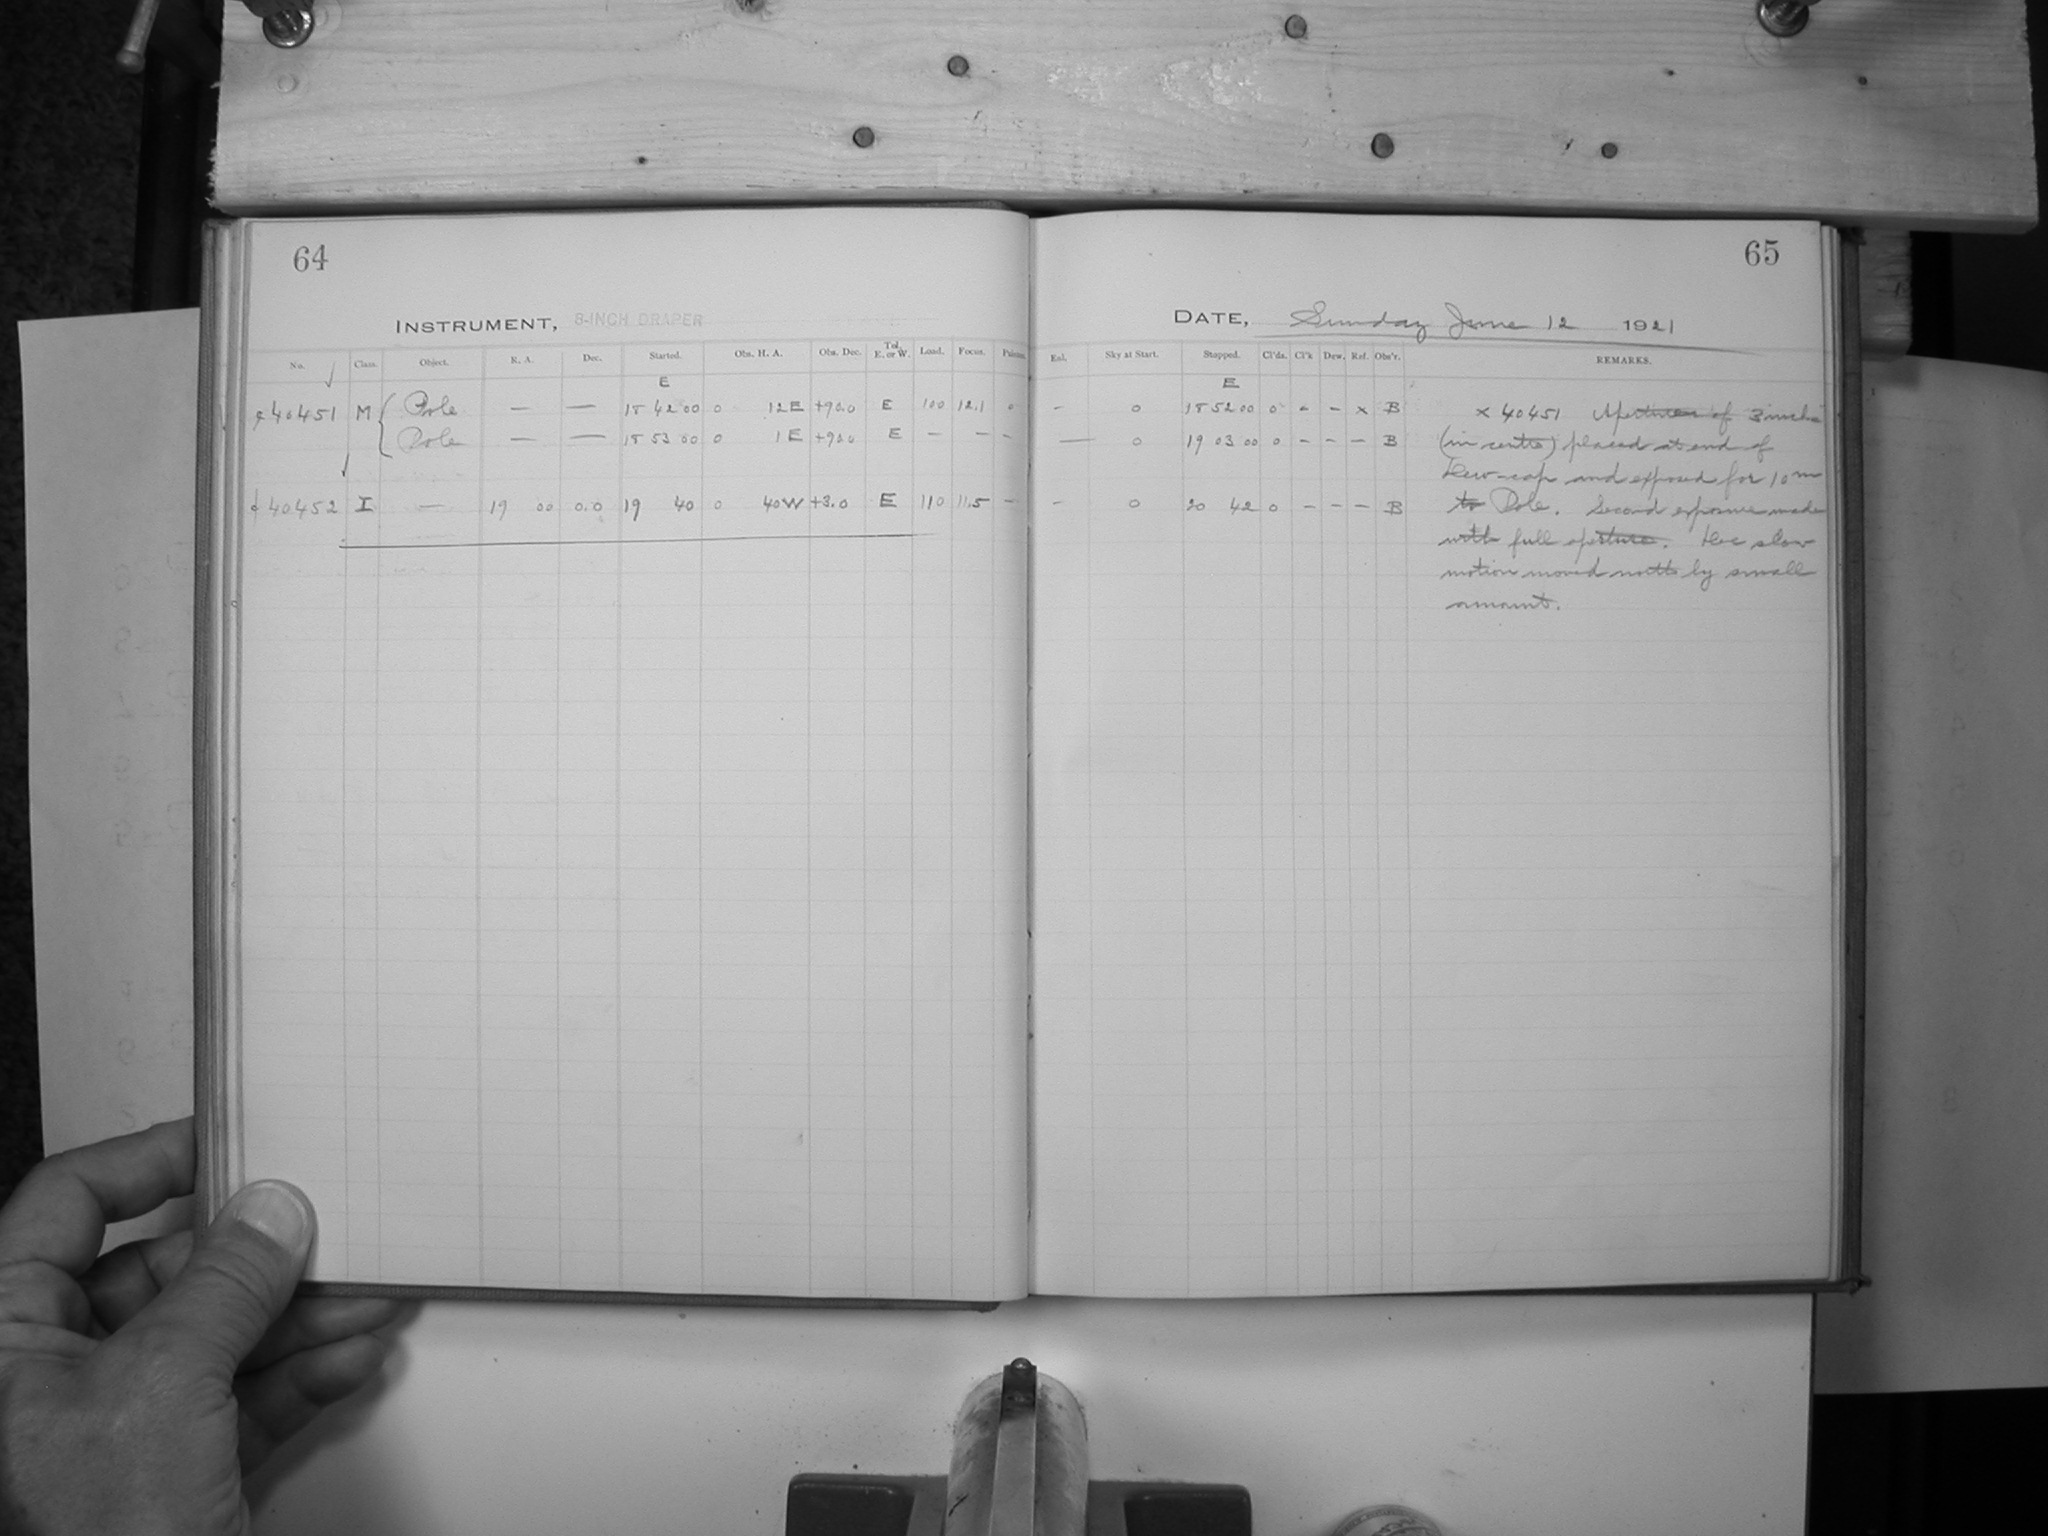 64
INSTRUMENT, 8-INCH DRAPER
No. Class. Object. R. A. Dec. Started. Obs. H. A. Obs. Dec. Tel. E. or W. Load. Focus.
E
40451 M Pole — — 18 42 00 0 12E +90.0 E 100 12.1 0
Pole — — 18 53 00 0 1E +90.0 E — — –
40452 I — 19 00 0.0 19 40 0 40W +3.0 E 110 11.5 –
65
DATE, Sunday June 12 1921
Sky at Start. Stopped. Cl'ds. Cl'k Dew. Ref. Obs'r. REMARKS.
E
– 0 18 52 00 0 – – x B
— 0 19 03 00 0 – – – B
– 0 20 42 0 – – – B
x 40451 Aperture of 3 inche
(in centre) placed at end of
Dew-cap and exposed for 10m
to Pole. Second exposure made
with full aperture. Dec slow
motion moved north by small
amount.